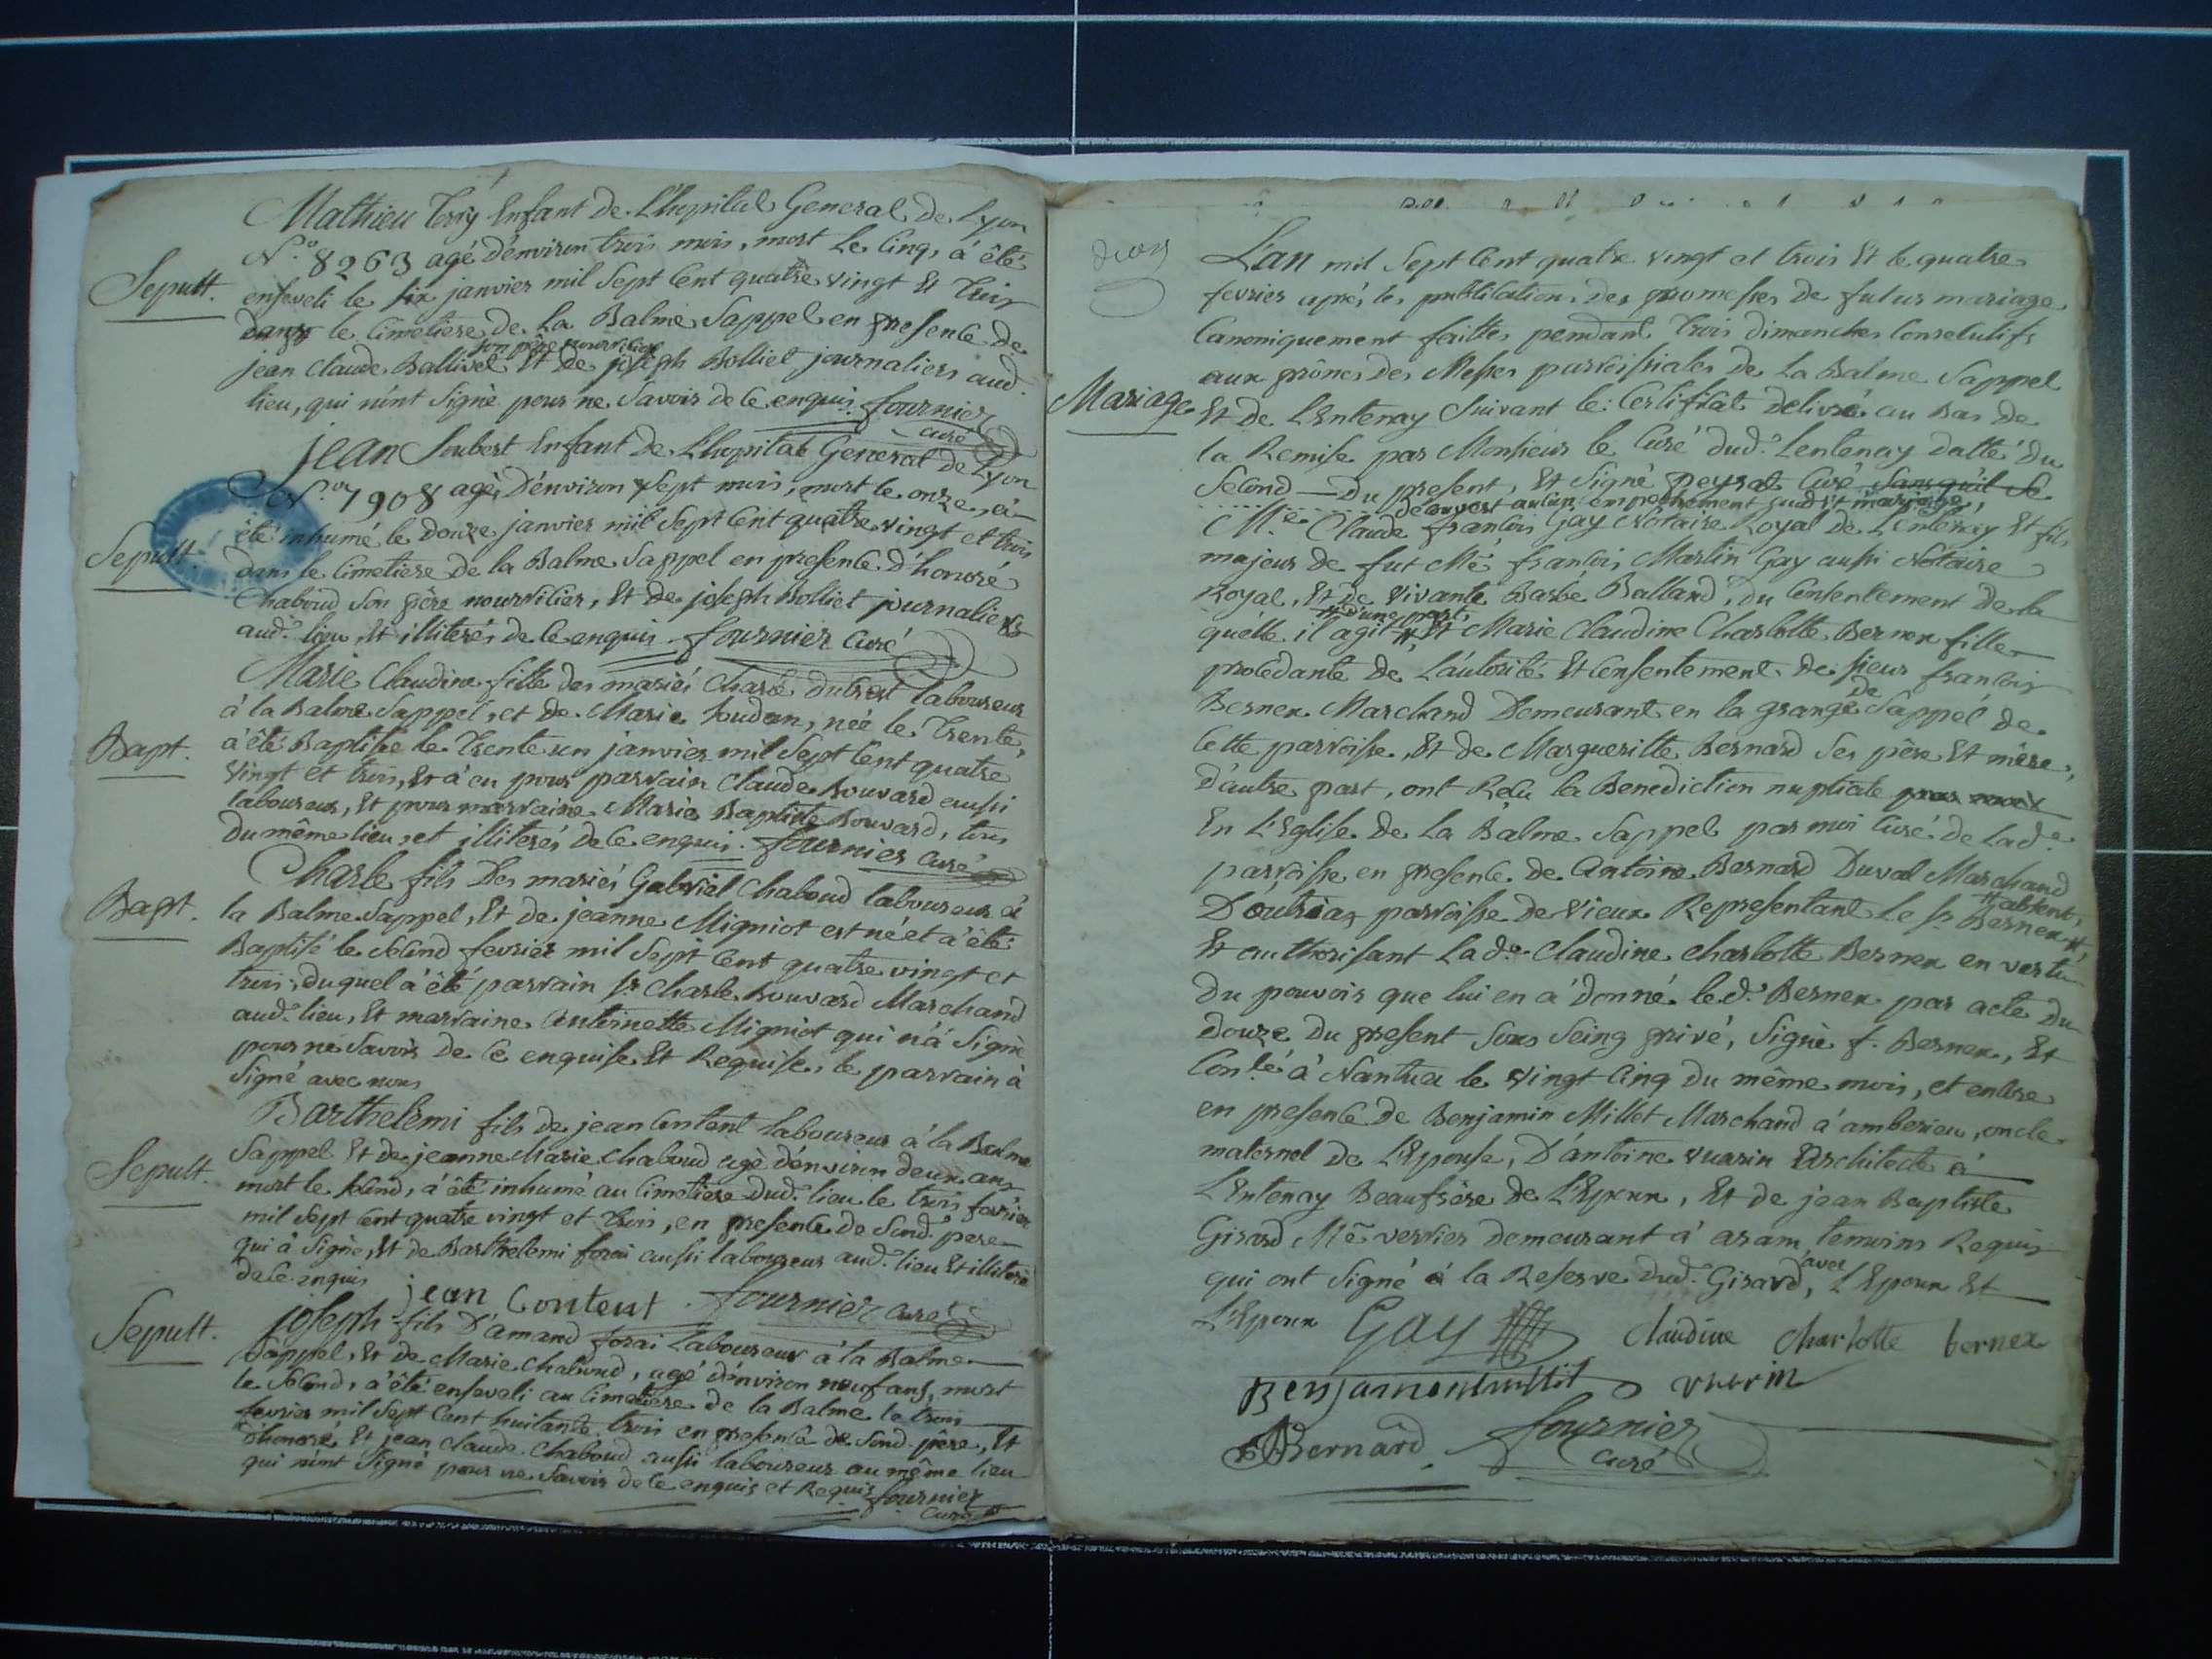 Mathieu Enfant de L'hopital General de Lyon
N.º 8263 agé d'environ trois mois, mort Le Cinq, à été
Sepult. enseveli le six janvier mil Sept Cent quatre vingt Et trois
dans le Cimetiere de La Balme Sappel en presence de
son père nourricier
jean Claude Ballivet Et de joseph Bolliet journaliers aud.
lieu, qui n'ont Signé pour ne Savoir de Ce enquis. fournier
curé
jean Joubert Enfant de L'hopital General de Lyon
N.º 7908 agé, D'environ Sept mois, mort le onze, à
été inhumé le douze janvier mil Sept Cent quatre vingt et trois
Sepult. dans le Cimetiere de la Balme Sappel en presence d'honoré
Chaboud Son père nourricier, Et de joseph Bolliet journaliers
aud.º lieu Et illiterés de Ce enquis. fournier Curé
Marie Claudine fille des mariés Charle dubret laboureur
à la Balme Sappel, et de Marie née le Trente,
Bapt. à été Baptisée le Trente un janvier mil Sept Cent quatre
vingt et trois, Et à eu pour parrain Claude Bouvard aussi
laboureur, Et pour marraine Marie Baptiste Bouvard, tous
du même lieu, et illiterés de Ce enquis. fournier Curé
Charle fils Des mariés Gabriel Chaboud laboureur à
Bapt. la Balme Sappel, Et de jeanne Migniot est né et à été
Baptisé le Second fevrier mil Sept Cent quatre vingt et
trois, duquel à été parrain sr Charle Bouvard Marchand
aud.º lieu, Et marraine Antoinette Migniot qui n'à Signé
pour ne Savoir de Ce enquise Et Requise, le parrain à
Signé avec nous
Barthelemi fils de jean Content laboureur à la Balme
Sappel Et de jeanne Marie Chaboud agé d'environ deux ans
Sepult. mort le Second, à été inhumé au Cimetiere dud.º lieu le trois fevrier
mil Sept Cent quatre vingt et trois, en presence de Sond.º père
qui à Signé, Et de Barthelemi forai aussi laboureur aud.º lieu Et illiteré
de Ce enquis jean Content . fournier curé
Sepult. joseph fils D'amand forai Laboureur à la Balme
Sappel, Et de Marie Chaboud, agé d'environ neuf ans, mort
le Second, à été enseveli au Cimetiere de la Balme le trois
fevrier mil Sept Cent huitante trois en presence de Sond.º père, Et
d'honoré, Et jean Claude Chaboud aussi laboureur au même lieu
qui n'ont Signé pour ne Savoir de Ce enquis et Requis fournier
curé
L'an mil Sept Cent quatre vingt et trois Et le quatre
fevrier aprés les publications des promesses de futur mariage
Canoniquement faittes pendant Trois dimanches Consecutifs
aux prônes des Messes parroissiales de La Balme Sappel
Mariage Et de L'Entenay Suivant le Certificat Delivré au Bas de
la Remise par Monsieur le Curé dud.º Lentenay datté du
Second — Du present, Et Signé Peysat Curé Sans qu'il Se
découvert aucun empechement sud.t mariage,
M.e Claude françois Gay Notaire Royal de Lentenay Et fils
majeur de fut Me françois Martin Gay aussi Notaire
Royal, Et de Vivante Barbe Balland, du Consentement de la
d'une part,
quelle il agit Et Marie Claudine Charlotte Bernex fille
procedante de L'autorité Et Consentement de sieur françois
de
Bernex Marchand Demeurant en la grange Sappel de
Cette parroisse, Et de Marguerite Bernard Ses père Et mère,
d'autre part, ont Reçu la Benediction nuptiale par moi
En L'Eglise de La Balme Sappel par moi Curé de Lad.e
parroisse en presence de Antoine Bernard Duval Marchand
absent,
D'outriaz parroisse de Vieux Representant Le sr Bernex
Et authorisant Lad.e Claudine Charlotte Bernex en vertu
Du pouvoir que lui en à donné led.º Bernex par acte du
douze du present Sous Seing privé, Signé f. Bernex, Et
Con.lé à Nantua le vingt Cinq du même mois, et entre
en presence de Benjamin Millet Marchand à amberieu, oncle
maternel de L'Epouse, D'antoine vuarin Architecte à
L'Entenay Beaufrère de L'Epoux, Et de jean Baptiste
Girard Me verrier demeurant à aram, temoins Requis
avec
qui ont Signé à la Reserve dud.º Girard, L'Epoux Et
L'Epouse Gay Claudine Charlotte bernex
Benjamin millit vuarin
Bernard fournier
Curé